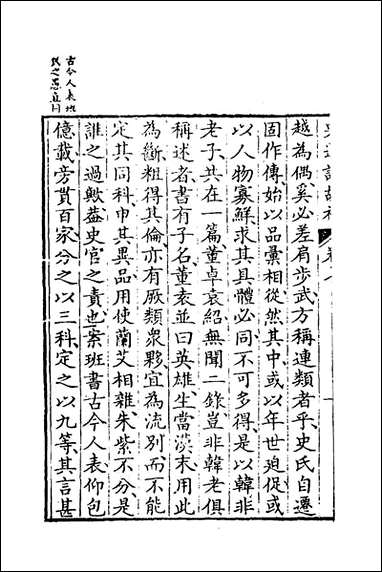 越為偶奚必差肩步武方稱連類者乎史氏自遷
固作傳始以品彙相從然其中或以年世迫促或
以人物寡鮮求其具體必同不可多得是以韓非
老子共在一篇董卓袁紹無聞二錄豈非韓老俱
稱述者書有子名董袁並曰英雄生當漢末用此
為斷粗得其倫亦有厥類衆夥宜為流別而不能
定其同科申其異品用使蘭艾相雜朱紫不分是
誰之過歟葢史官之責也案班書古今人表仰包
億載旁貫百家分之以三科定之以九等其言甚
古今人表地